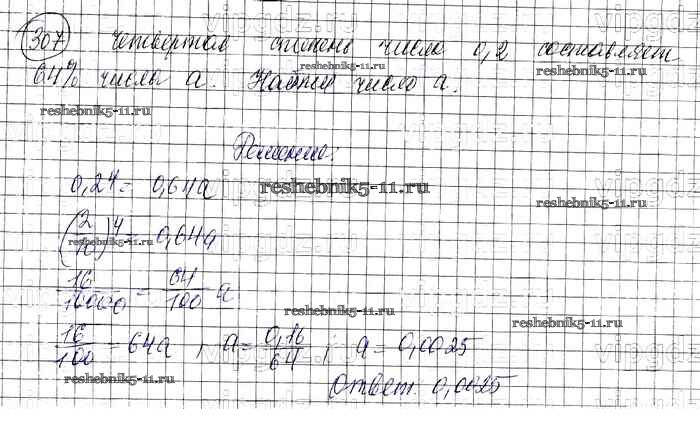 307 Четвертая степень числа 0,2 составляет
64% числа a. Найти число a.
reshebnik5-11.ru
reshebnik5-11.ru
reshebnik5-11.ru
Решение:
0,2⁴ = 0,64a
reshebnik5-11.ru
reshebnik5-11.ru
(2/10)⁴ = 0,64a
reshebnik5-11.ru
16/10000 = 64/100 a
reshebnik5-11.ru
reshebnik5-11.ru
16/100 = 64a ; a = 0,16/64 ; a = 0,0025
reshebnik5-11.ru
Ответ. 0,0025